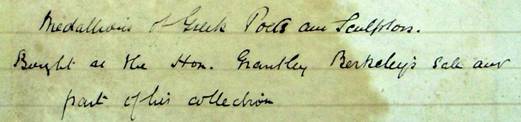 Medallions of Greek Poets and Sculptors.
Bought at the Hon. Grantley Berkeley's sale and
part of his collection